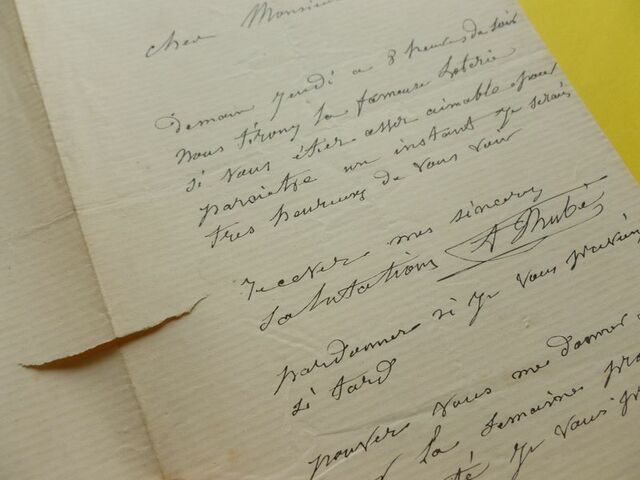 cher Monsieur
Demain Jeudi a 8 heures du soir
nous tirons la fameuse loterie
si vous êter asser aimable pour
paroietre un instant je serais
tres heureux de vous voir
recever mes sincere
salutations A Thubé
pardonner si je vous previen
si tard
pouver vous me donner
la semaines pro
té je vous pr